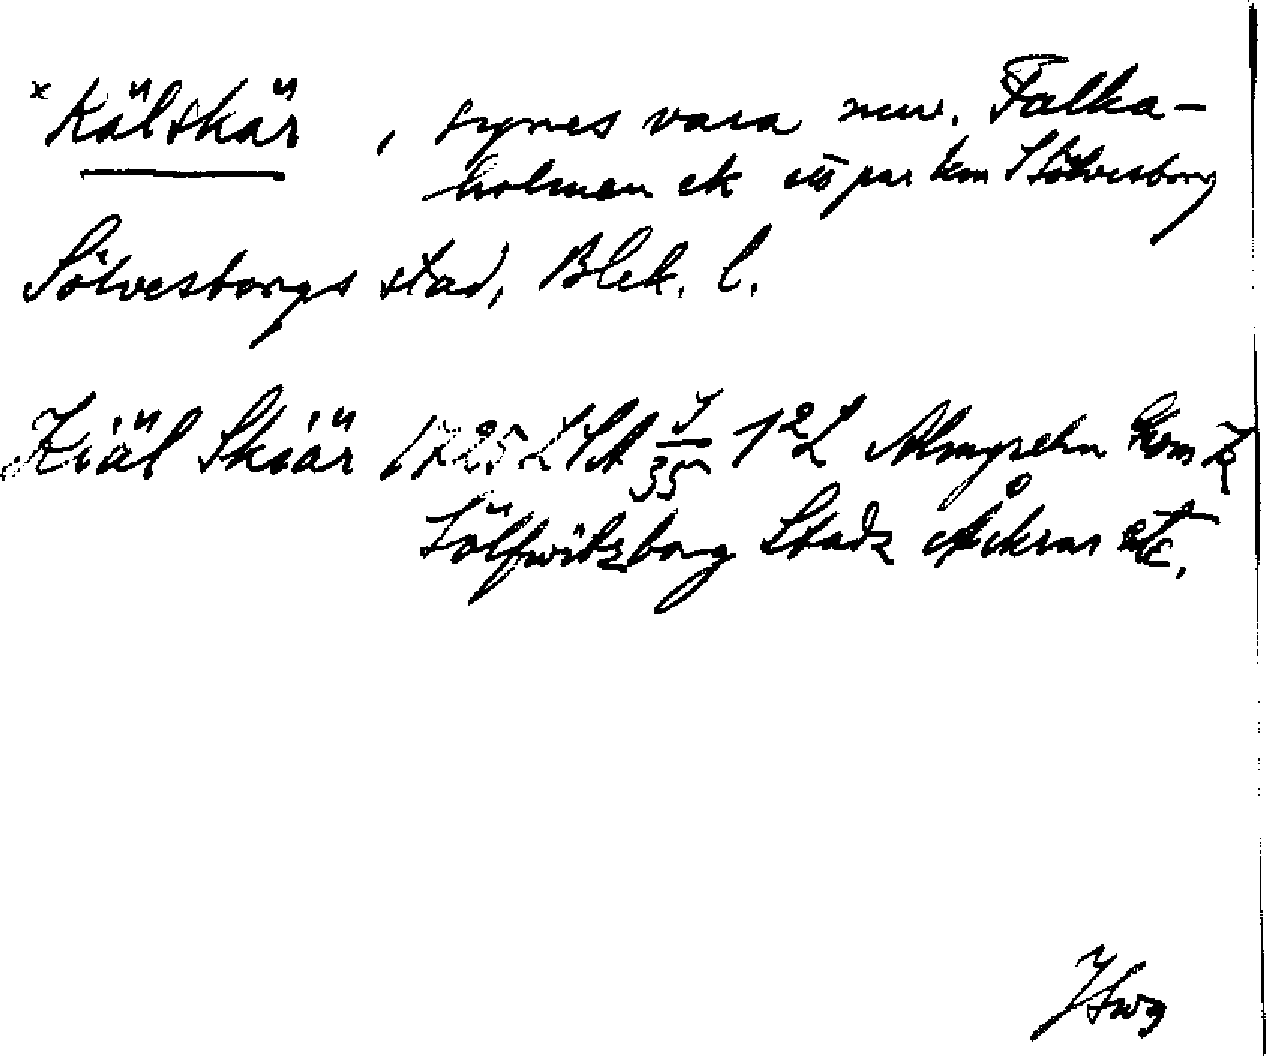 × Kälskär, synes vara nuv. Falka-
holmen ek ett par km S Sölvesborg
Sölvesborgs stad, Blek. l.
Kiäl Skiär 1725 LSA 35 1 2 L Almgrehn
Sölfwitzborg Stadz Åkrar etc.